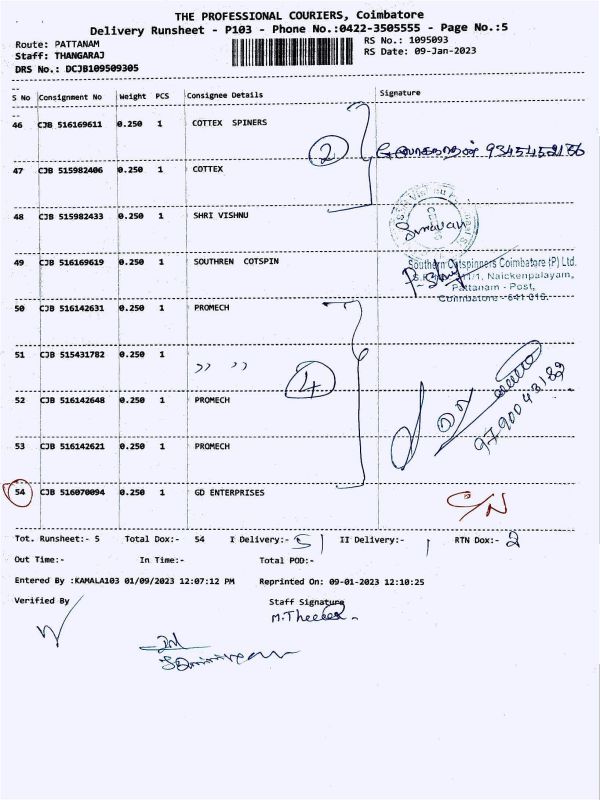 THE PROFESSIONAL COURIERS, Coimbatore
Delivery Runsheet - P103 - Phone No.:0422-3505555 - Page No.:5
Route: PATTANAM
RS No.: 1095093
Staff: THANGARAJ
RS Date: 09-Jan-2023
DRS No.: DCJB109509305
S No Consignment No Weight PCS Consignee Details Signature
46 CJB 516169611 0.250 1 COTTEX SPINERS
2 9345452166
47 CJB 515982406 0.250 1 COTTEX
48 CJB 515982433 0.250 1 SHRI VISHNU
49 CJB 516169619 0.250 1 SOUTHREN COTSPIN
Southern Cotspinners Coimbatore (P) Ltd.
Naickenpalayam,
Pattanam - Post,
Coimbatore - 641 016.
50 CJB 516142631 0.250 1 PROMECH
51 CJB 515431782 0.250 1 ,, ,,
4
52 CJB 516142648 0.250 1 PROMECH
9790043189
53 CJB 516142621 0.250 1 PROMECH
54 CJB 516070094 0.250 1 GD ENTERPRISES
C/N
Tot. Runsheet:- 5 Total Dox:- 54 I Delivery:- 51 II Delivery:- 1 RTN Dox:- 2
Out Time:- In Time:- Total POD:-
Entered By :KAMALA103 01/09/2023 12:07:12 PM Reprinted On: 09-01-2023 12:10:25
Verified By Staff Signature